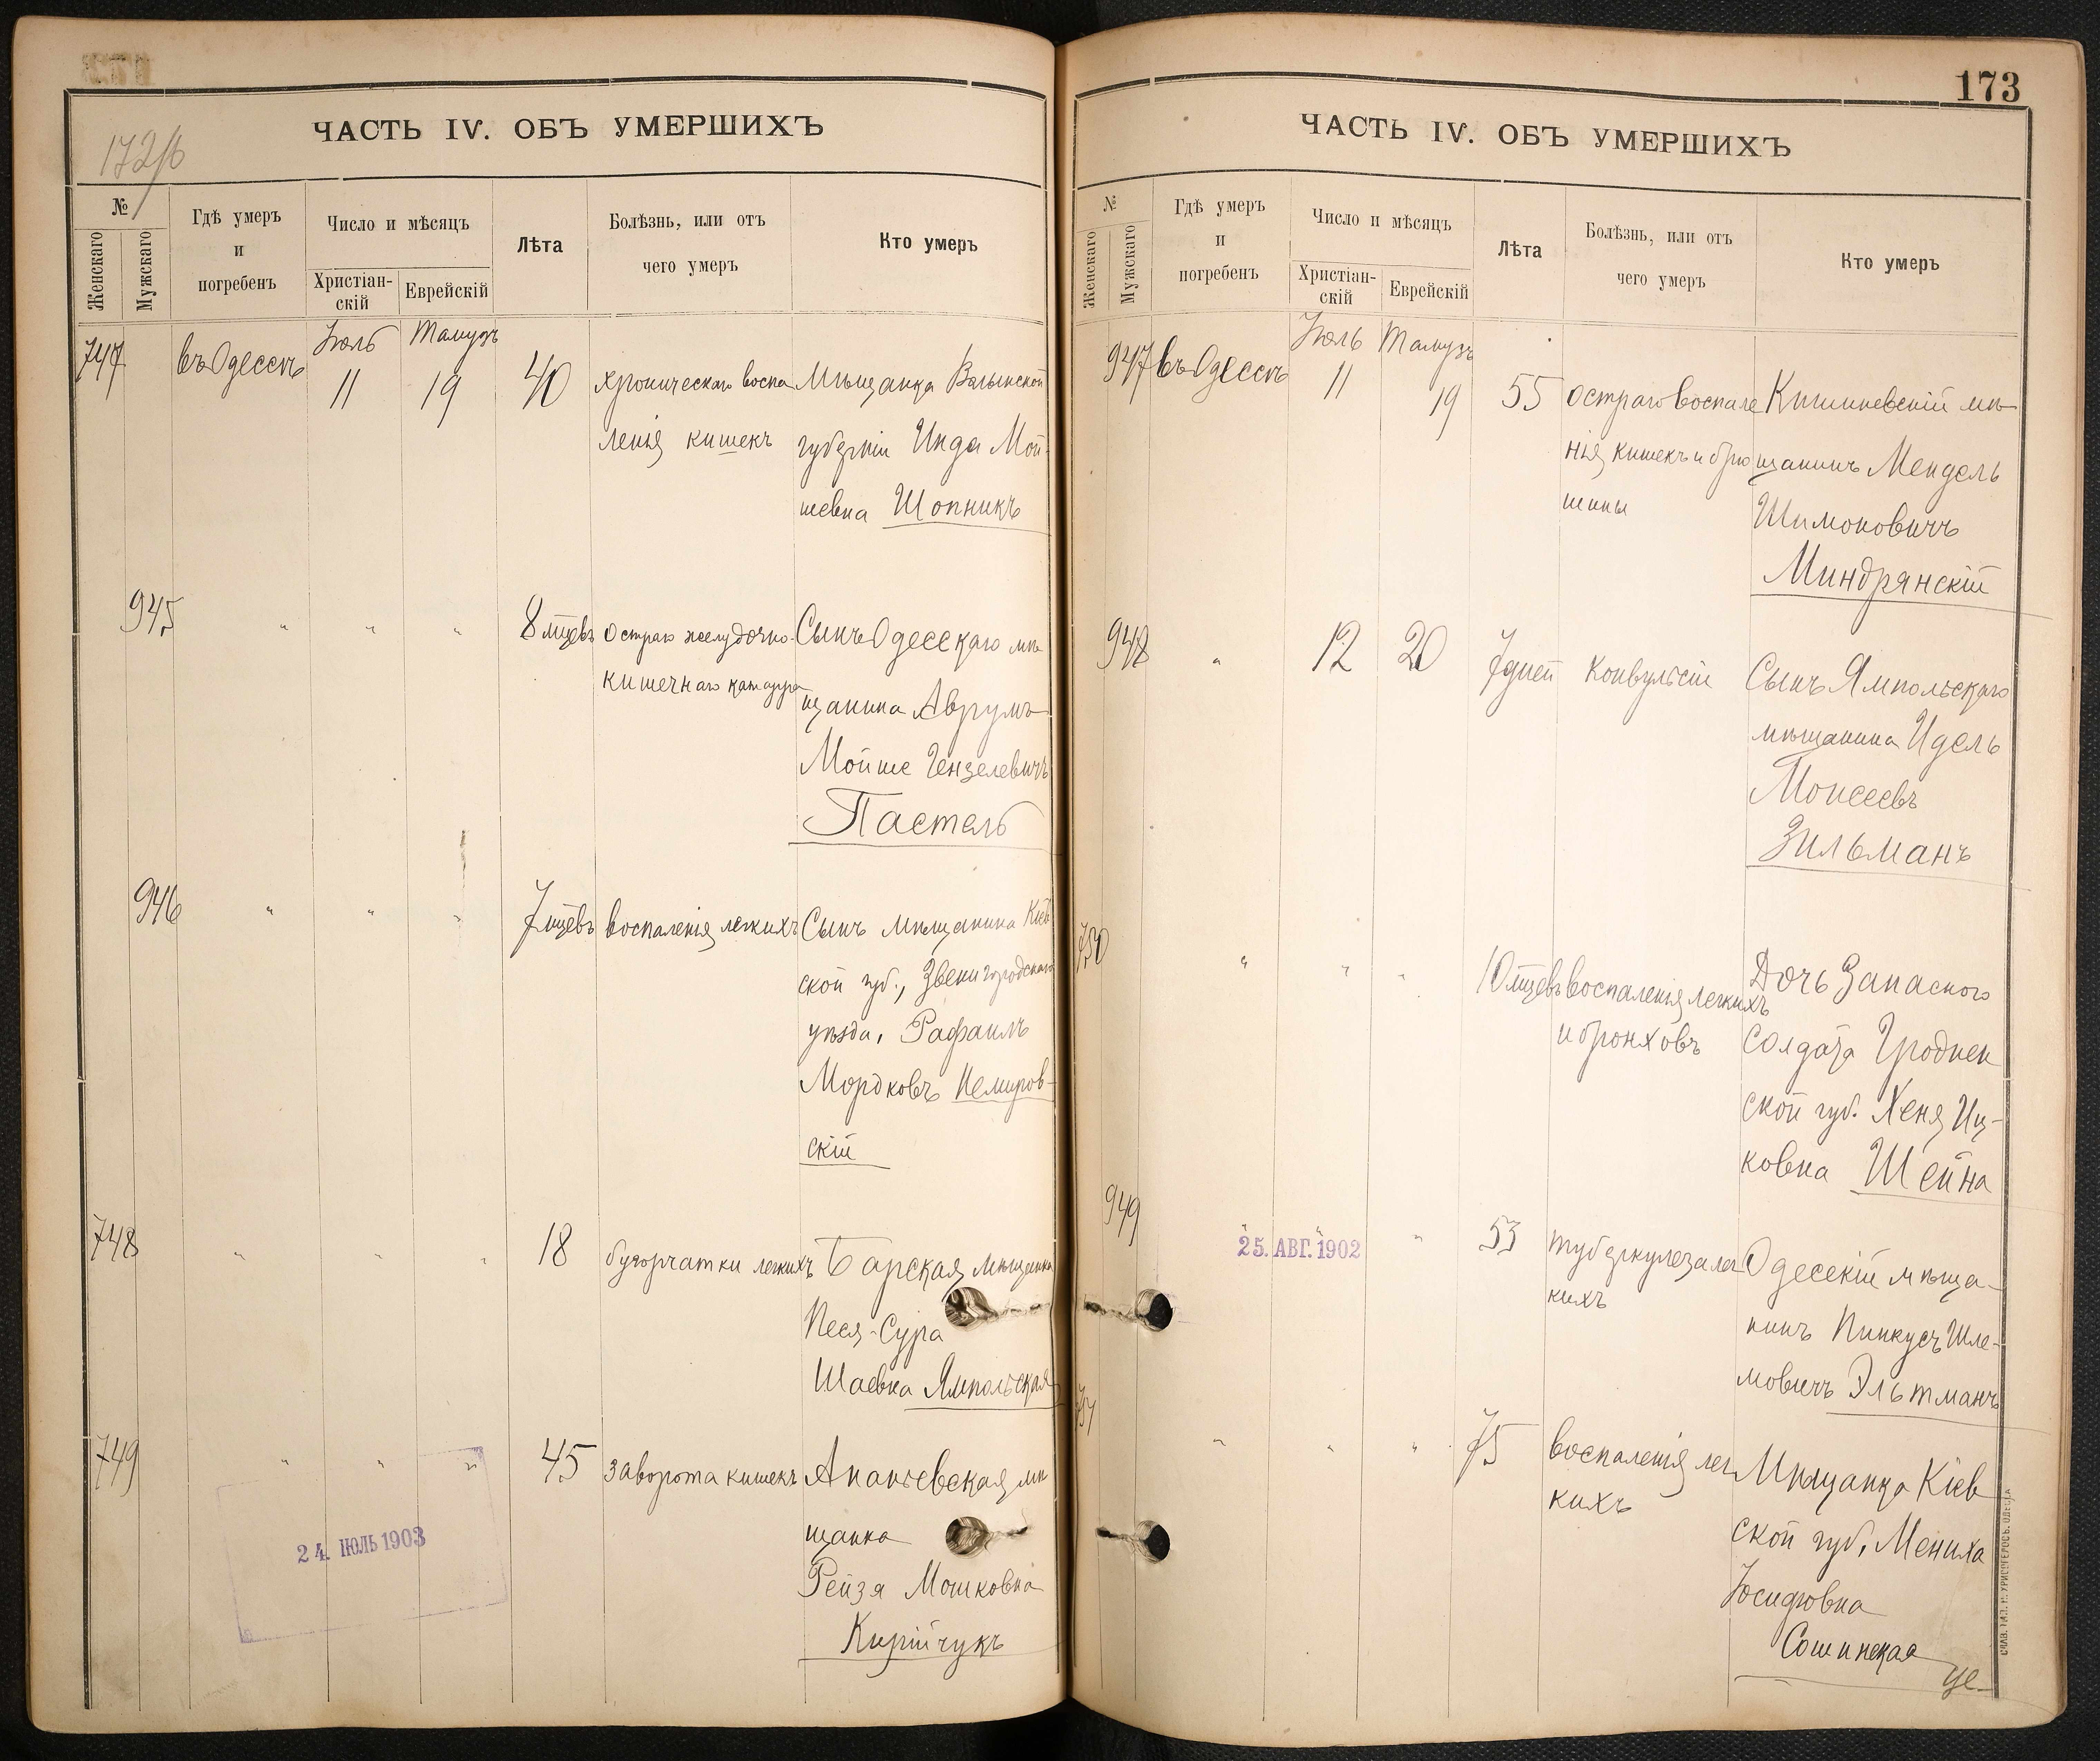 172/б
ЧАСТЬ IV. ОБЪ УМЕРШИХЪ
№
Женскаго
Мужскаго
Гдѣ умеръ
и
погребенъ
Число и мѣсяцъ
Христіан-
скій
Еврейскій
Лѣта
Болѣзнь, или отъ
чего умеръ
Кто умеръ
747
въ Одессѣ
Іюль
11
Тамузъ
19
40
хроническаго воспа
ленія кишекъ
Мѣщанка Волынской
губерніи Инда Мой-
шевна Шопникъ
945
"
"
"
8 мцевъ
остраго желудочно-
кишечнаго катарра
Сынъ Одесскаго мѣ
щанина Аврумъ
Мойше Гензелевичъ
Пастель
946
"
"
"
7 мцевъ
воспаленія легкихъ
Сынъ мѣщанина Кіев
ской губ., Звенигородскаго
уѣзда, Рафаилъ
Мордковъ Немиров-
скій
748
"
"
"
18
бугорчатки легкихъ
Барская мѣщанка
Песя-Сура
Шаевна Ямпольская
749
"
"
"
45
заворота кишекъ
Ананьевская мѣ
щанка
Рейзя Мошковна
Кирійчукъ
24. ІЮЛЬ 1903
173
ЧАСТЬ IV. ОБЪ УМЕРШИХЪ
№
Женскаго
Мужскаго
Гдѣ умеръ
и
погребенъ
Число и мѣсяцъ
Христіан-
скій
Еврейскій
Лѣта
Болѣзнь, или отъ
чего умеръ
Кто умеръ
947
въ Одессѣ
Іюль
11
Тамузъ
19
55
остраго воспале
нія кишекъ и брю
шины
Кишиневскій мѣ
щанинъ Мендель
Шимоновичъ
Миндрянскій
948
"
12
20
7 дней
конвульсіи
Сынъ Ямпольскаго
мѣщанина Идель
Моисеевъ
Зильманъ
750
"
"
"
10 мцевъ
воспаленія легкихъ
и бронховъ
Дочь Запасного
Солдата Гроднен
ской губ. Хеня Иц-
ковна Шейна
949
"
"
"
25. АВГ. 1902
53
туберкулеза лег
кихъ
Одесскій мѣща-
нинъ Пинкусъ Шле-
мовичъ Эльтманъ
751
"
"
"
75
воспаленія лег
кихъ
Мѣщанка Кіев
ской губ. Мениха
Іосифовна
Сошинская